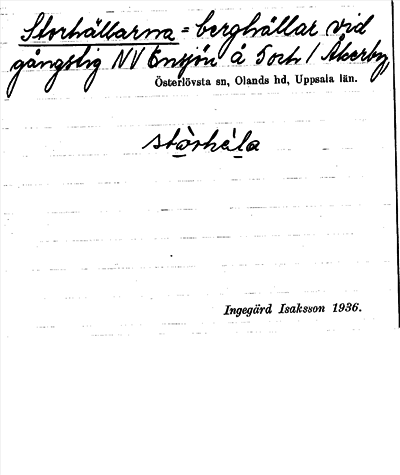 Storhällarna = berghällar vid
gångstig NV Ensjön å 5 och 1 Åkerby,
Österlövsta sn, Olands hd, Uppsala län.
stòrhɛ́la
Ingegärd Isaksson 1936.